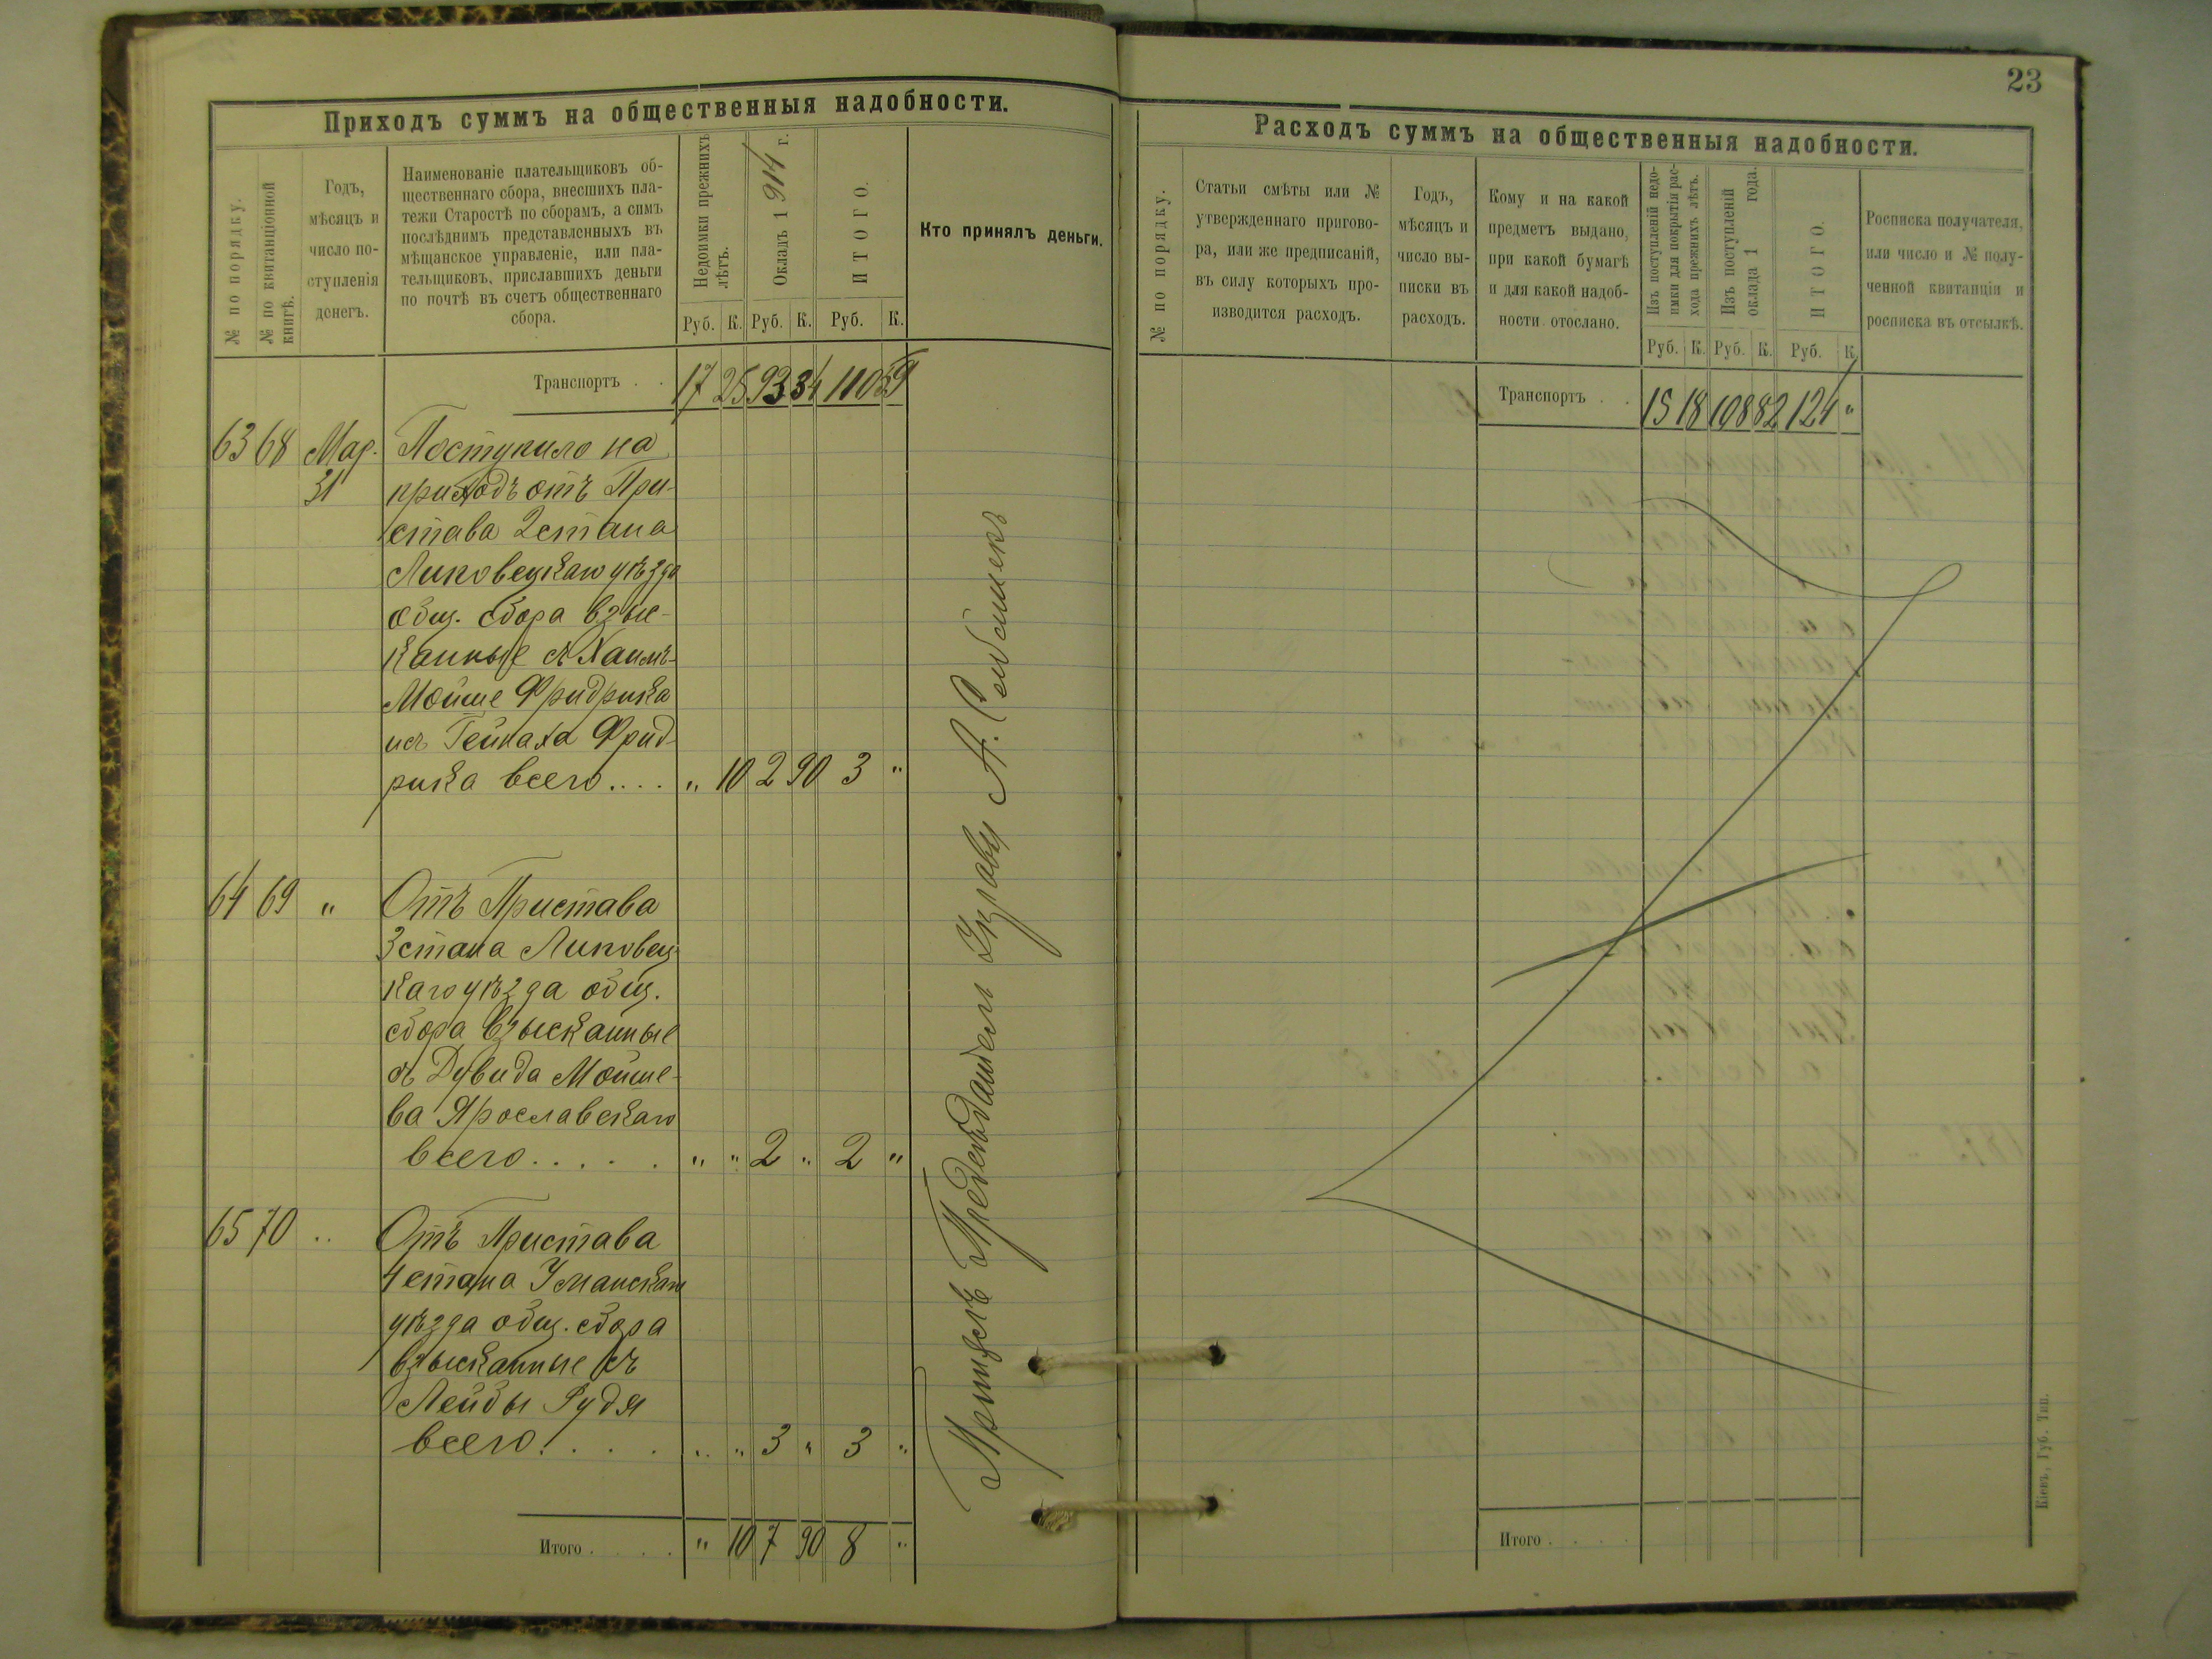 Приходъ суммъ на общественныя надобности.
№ по порядку.
№ по квитанціонной
книгѣ.
Годъ,
мѣсяцъ и
число по-
ступленія
денегъ.
Наименованіе плательщиковъ об-
щественнаго сбора, внесшихъ пла-
тежи Старостѣ по сборамъ, а симъ
послѣднимъ представленныхъ въ
мѣщанское управленіе, или пла-
тельщиковъ, приславшихъ деньги
по почтѣ въ счетъ общественнаго
сбора.
Недоимки прежнихъ
лѣтъ.
Окладъ 1914 г.
ИТОГО.
Кто принялъ деньги.
Руб. К. Руб. К. Руб. К.
Транспортъ . . 17 25 93 34 110 59
63 68 Мар. Поступило на
31 приходъ отъ При-
става 2 стана
Липовецкаго уѣзда
общ. сбора взыс-
канные съ Хаимъ-
Мойше Фридриха
исъ Гейнаха Фрид-
риха всего.... " 10 2 90 3 "
64 69 " Отъ Пристава
3 стана Липовец-
каго уѣзда общ.
сбора взысканные
съ Дувида Мойше-
ва Ярославскаго
всего..... " " 2 " 2 "
65 70 " Отъ Пристава
4 стана Уманскаго
уѣзда общ. сбора
взысканные съ
Лейбы Рудя
всего.... " " 3 " 3 "
Итого . . . . " 10 7 90 8 "
Предсѣдатель Управы А.
23
Расходъ суммъ на общественныя надобности.
№ по порядку.
Статьи смѣты или №
утвержденнаго пригово-
ра, или же предписаній,
въ силу которыхъ про-
изводится расходъ.
Годъ,
мѣсяцъ и
число вы-
писки въ
расходъ.
Кому и на какой
предметъ выдано,
при какой бумагѣ
и для какой надоб-
ности отослано.
Изъ поступленій недо-
имки для покрытія рас-
хода прежнихъ лѣтъ.
Изъ поступленій
оклада 1 года.
ИТОГО.
Росписка получателя,
или число и № полу-
ченной квитанціи и
росписка въ отсылкѣ.
Руб. К. Руб. К. Руб. К.
Транспортъ . . 15 18 108 82 124 "
Итого . . . .
Кіевъ, Губ. Тип.